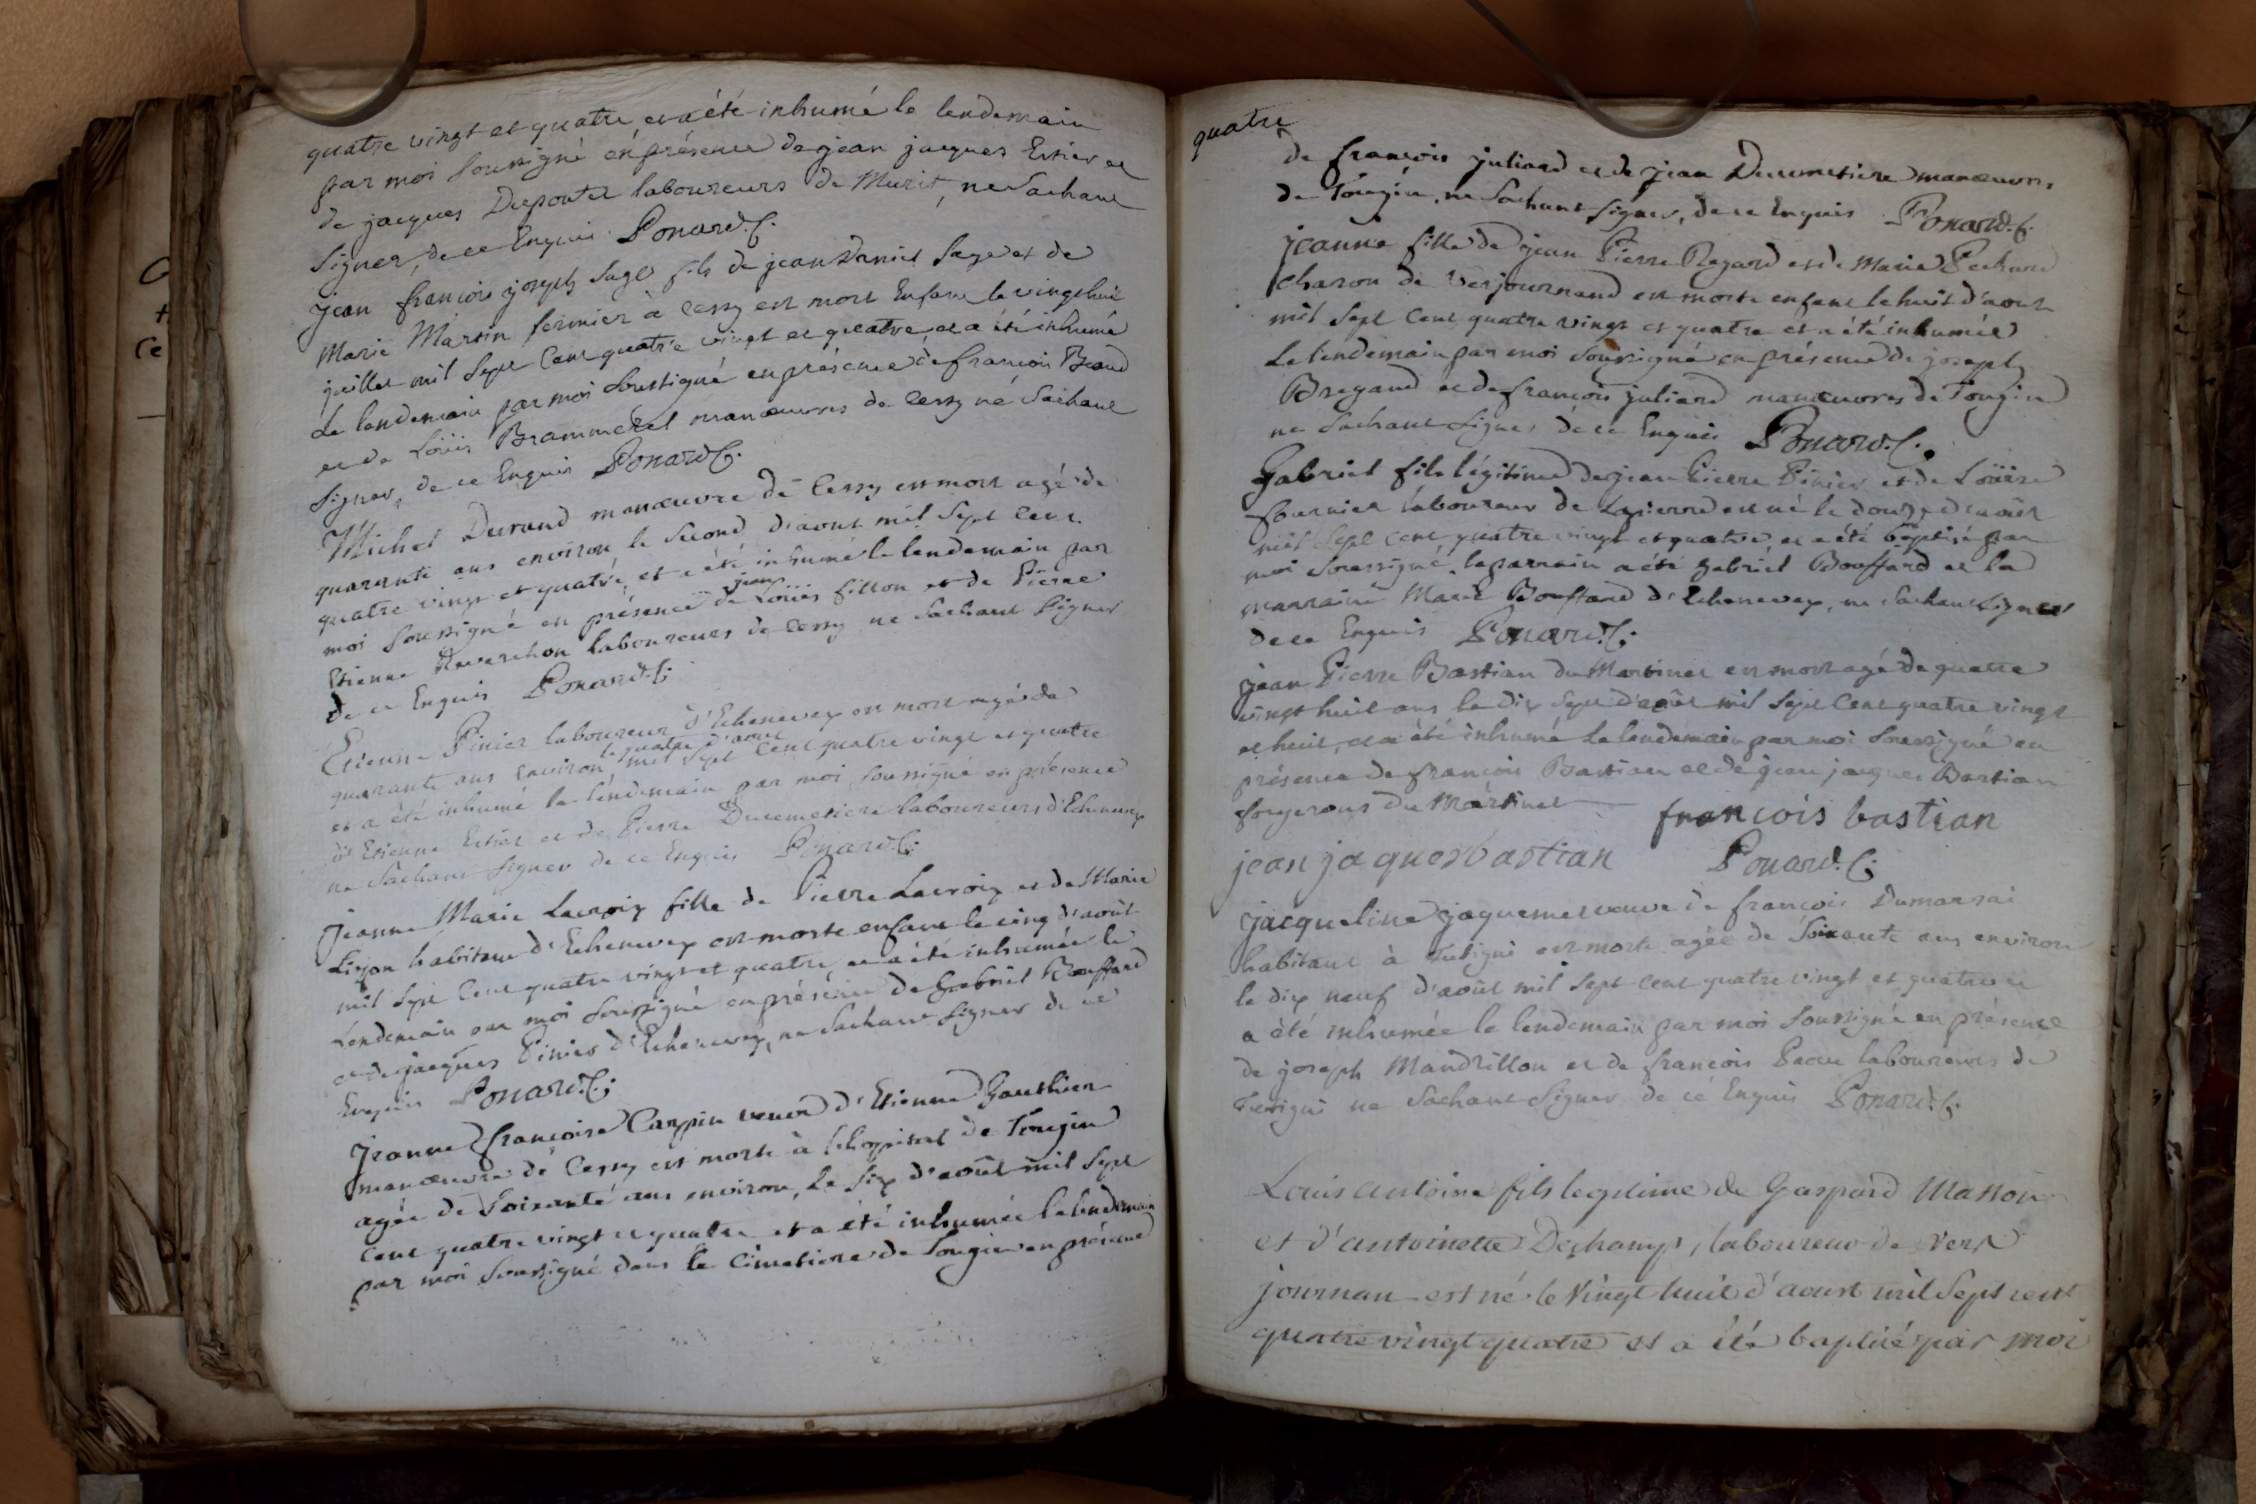 quatre vingt et quatre et a été inhumé le lendemain
par moi soussigné en présence de jean jacques Estier et
de jacques Duponter laboureurs de Murit, ne sachant
signer, de ce Enquis Ponard. C.
jean françois joseph Sage fils de jean Daniel Sage et de
Marie Martin fermier à Cessy est mort Enfant le vingt huit
juillet mil sept cent quatre vingt et quatre et a été inhumé
le lendemain par moi soussigné en présence de françois
et de Loüis Brammerel manœuvres de Cessy ne sachant
signer, de ce Enquis Ponard C.
Michel Durand manœuvre de Cessy est mort agé de
quarante ans environ le second d'aout mil sept cent
quatre vingt et quatre, et a été inhumé le lendemain par
moi soussigné en présence de jean Loüis fillon et de Pierre
Etienne Reverchon laboureurs de Cessy ne sachant signer
de ce Enquis Ponard. C.
Etienne Pinier laboureur d'Echenevex est mort agé de
quarante ans environ le quatre d'aout mil sept cent quatre vingt et quatre
et a été inhumé le lendemain par moi soussigné en présence
d'Etienne Estier et de Pierre Ducimetiere laboureurs d'Echenevex
ne sachant signer de ce Enquis Ponard. C.
Jeanne Marie Lacroix fille de Pierre Lacroix et de Marie
habitant d'Echenevex est morte enfant le cinq d'août
mil sept cent quatre vingt et quatre, et a été inhumée le
Lendemain par moi soussigné en présence de Gabriel Bouffard
et de jacques Pinier d'Echenevex, ne sachant signer de ce
Enquis Ponard. C.
Jeanne françoise Carppin veuve d'Etienne Gauthier
manœuvre de Cessy est morte à l'hopital de Tougin
agée de soixante ans environ, le six d'août mil sept
cent quatre vingt et quatre et a été inhumée le lendemain
par moi soussigné dans le cimetiere de Tougin en présence
quatre
de françois juliard et de jean Ducimetiere manœuvres
de Tougin, ne sachant signer, de ce Enquis Ponard. C.
jeanne fille de jean Pierre Regard et de Marie Pechard
charon de Versjournand est morte enfant le huit d'aout
mil sept cent quatre vingt et quatre et a été inhumée
Le lendemain par moi soussigné en présence de joseph
Bregand et de françois juliard manœuvres de Tougin
ne sachant signer de ce Enquis Ponard. C.
Gabriel fils légitime de jean Pierre Pinier et de Loüise
fournier laboureur de Lapierre est né le douze d'août
mil sept cent quatre vingt et quatre et a été baptisé par
moi soussigné, le parrain a été gabriel Bouffard et la
marraine Marie Bouffard d'Echenevex, ne sachant signer
de ce Enquis Ponard. C.
jean Pierre Bastian du Martinet est mort agé de quatre
vingt huit ans le dix sept d'août mil sept cent quatre vingt
et huit, et a été inhumé le lendemain par moi soussigné en
présence de françois Bastian et de jean jacques Bastian
forgerons du Martinet
françois bastian
jean jaques bastian Ponard. C.
jacqueline jaquemet veuve de françois Dumarsai
habitant à est morte agée de soixante ans environ
le dix neuf d'août mil sept cent quatre vingt et quatre et
a été inhumée le lendemain par moi soussigné en présence
de joseph Mandrillon et de françois laboureurs de
ne sachant signer de ce Enquis Ponard. C.
Louis antoine fils legitime de Gaspard Masson
et d'antoinette Deschamps, laboureur de Vers
journan est né le vingt huit d'aoust mil sept cent
quatre vingt quatre et a été baptisé par moi